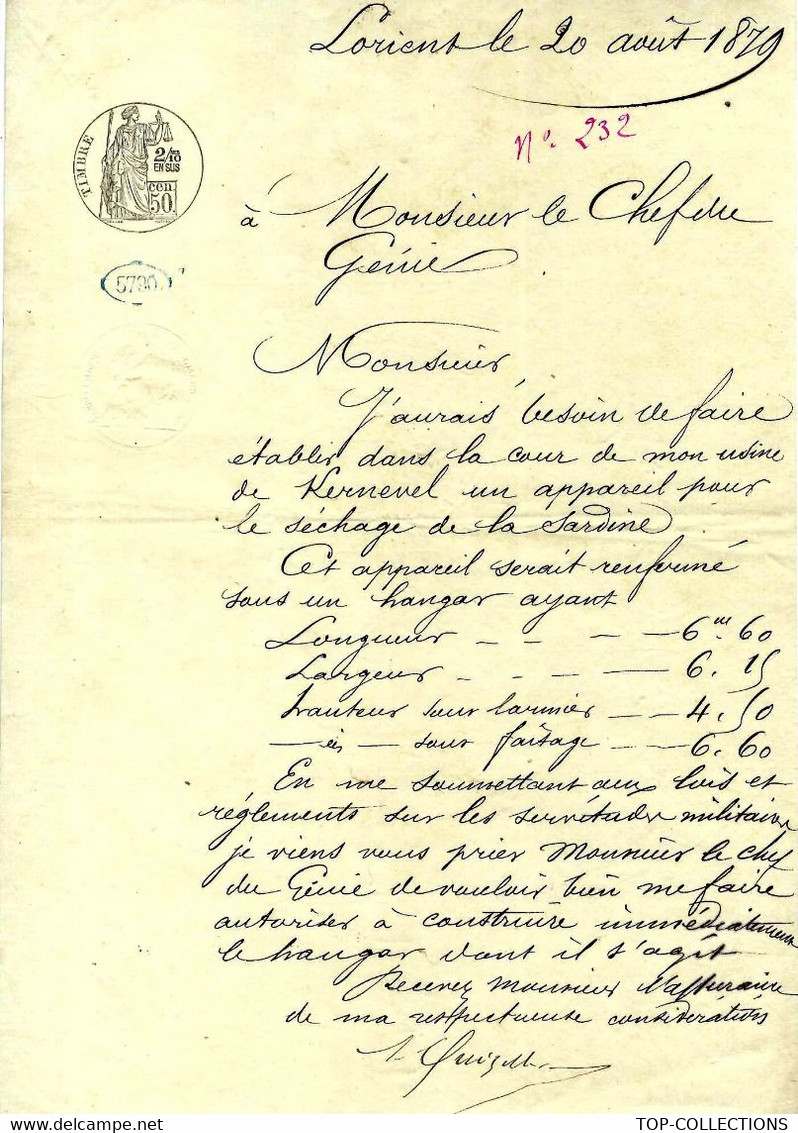 Lorient le 20 août 1879
N°. 232
TIMBRE
2/10
EN SUS
cen.
50
5790
à Monsieur le Chef du
Génie
Monsieur
J'aurais besoin de faire
établir dans la cour de mon usine
de Kernevel un appareil pour
le séchage de la sardine
Cet appareil serait renfermé
sous un hangar ayant
Longueur - - - - 6m. 60
Largeur - - - - 6. 15
hauteur sous larmier - - 4. 50
— id — sous faîtage - - 6. 60
En me soumettant aux lois et
réglements sur les servitudes militaires
je viens vous prier Monsieur le Chef
du Génie de vouloir bien me faire
autoriser à construire immédiatement
le hangar dont il s'agit
Recevez Monsieur l'assurance
de ma respectueuse considération
TOP-COLLECTIONS